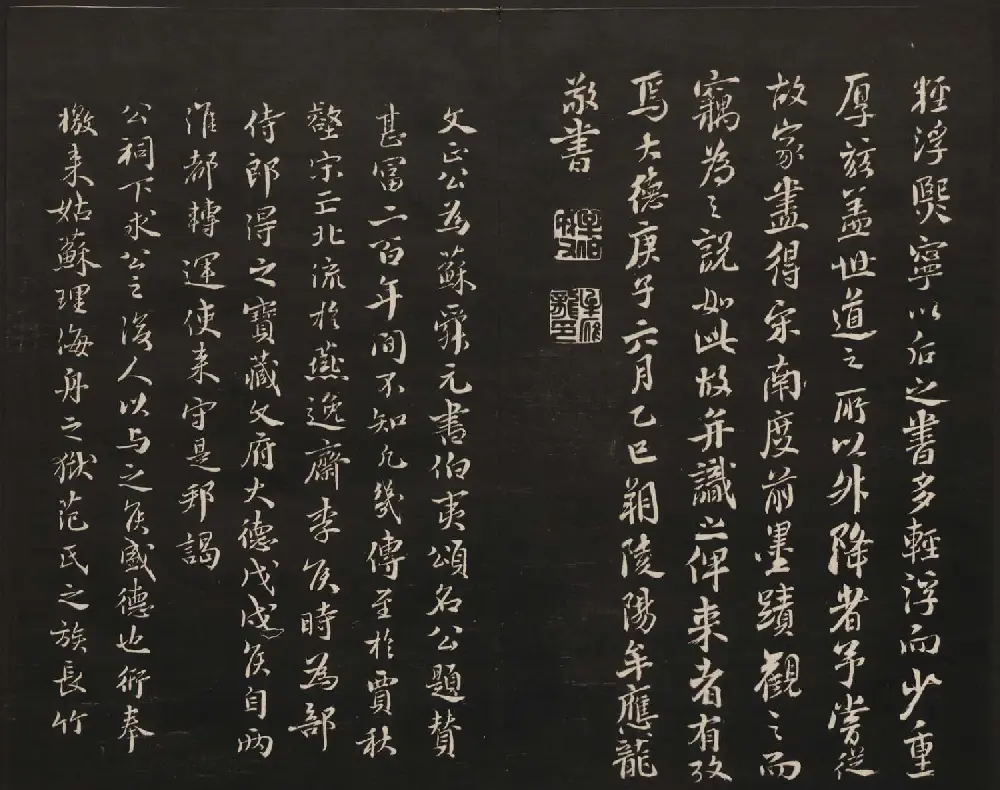 輕浮熙寧以后之書多輕浮而少重
厚玆盖世道之所以外降者乎嘗從
故家盡得宋南度前墨蹟觀之而
竊為之說如此故并識之俾来者有攷
焉大德庚子六月乙巳朔陵陽牟應龍
敬書
文正公為蘇舜元書伯夷頌名公題賛
甚富二百年間不知凡幾傳至於賈秋
壑宋亡北流於燕逸齋李侯時為部
侍郎得之寶藏文府大德戊戌侯自兩
淮都轉運使来守是邦謁
公祠下求公之後人以与之侯盛德也衍奉
檄来姑蘇理海舟之獄范氏之族長竹